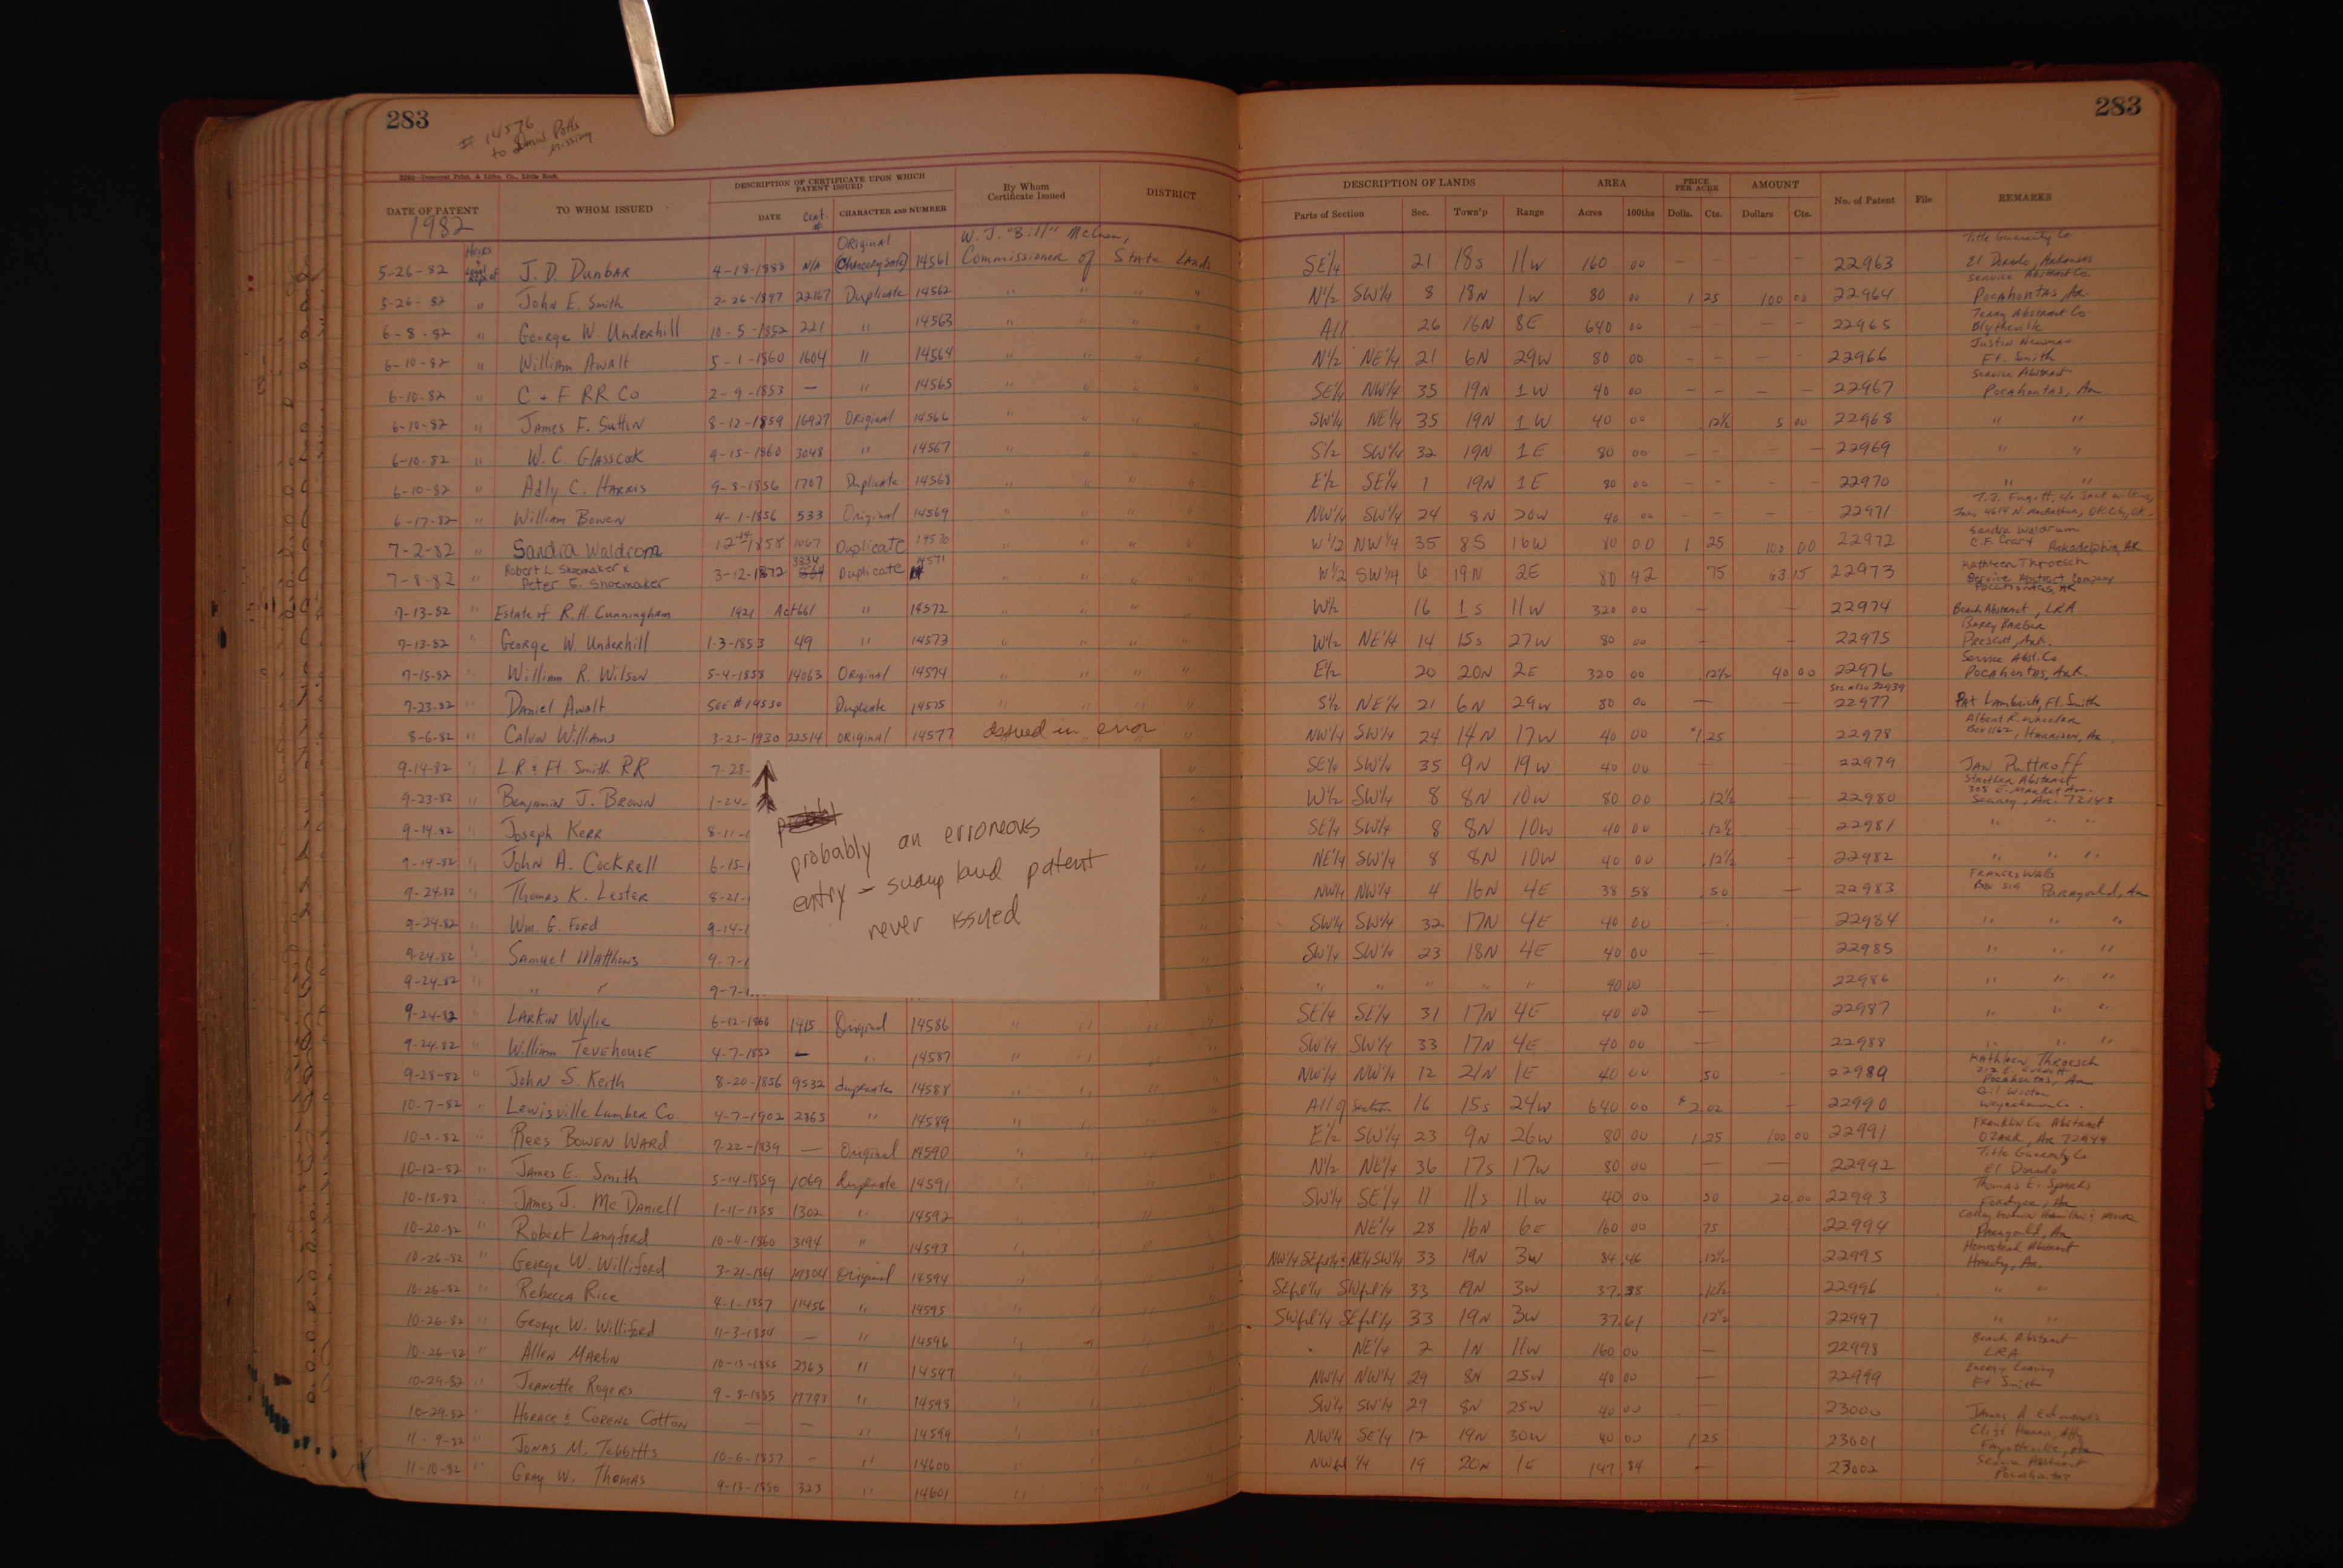 283
# 14576
to David Potts
missing
3252—Democrat Print. & Litho. Co., Little Rock.
DATE OF PATENT
TO WHOM ISSUED
DESCRIPTION OF CERTIFICATE UPON WHICH PATENT ISSUED
DATE
Cert. #
CHARACTER AND NUMBER
By Whom Certificate Issued
DISTRICT
1982
W. J. "Bill" McCuen,
Commissioner of State Lands
5-26-82 Heirs & Legal Rep. of J. D. Dunbar 4-18-1888 N/A Original (Chancery Sale) 14561
5-26-82 " John E. Smith 2-26-1897 22167 Duplicate 14562 " " " "
6-8-82 " George W. Underhill 10-5-1852 221 " 14563 " " " "
6-10-82 " William Awalt 5-1-1860 1604 " 14564 " " " "
6-10-82 " C + F RR Co 2-9-1853 — " 14565 " " " "
6-10-82 " James F. Sutton 8-12-1859 16927 Original 14566 " " " "
6-10-82 " W. C. Glasscock 9-15-1860 3048 " 14567 " " " "
6-10-82 " Adly C. Harris 9-8-1856 1707 Duplicate 14568 " " " "
6-17-82 " William Bowen 4-1-1856 533 Original 14569 " " " "
7-2-82 " Sandra Waldrom 1858 1067 Duplicate 14570 " " " "
7-8-82 " Robert L. Shoemaker & Peter E. Shoemaker 3-12-1872 3334 Duplicate 14571 " " " "
7-13-82 " Estate of R. H. Cunningham 1921 Act 661 " 14572 " " " "
7-13-82 " George W. Underhill 1-3-1853 49 " 14573 " " " "
7-15-82 " William R. Wilson 5-4-1858 14063 Original 14574 " " " "
7-23-82 " Daniel Awalt SEE # 14530 Duplicate 14575 " " " "
8-6-82 " Calvin Williams 3-25-1930 22514 Original 14577 Issued in error
9-14-82 " L.R. & Ft. Smith RR 7-28-
9-23-82 " Benjamin J. Brown 1-24-
9-14-82 " Joseph Kerr 8-11-
9-14-82 " John A. Cockrell 6-15-
9-24-82 " Thomas K. Lester 8-21-
9-24-82 " Wm. G. Ford 9-14-
9-24-82 " Samuel Matthews 9-7-
9-24-82 " " 9-7-
probably an erroneous
entry – swamp land patent
never issued
9-24-82 " Larkin Wylie 6-12-1860 1415 Original 14586 " " "
9-24-82 " William Tevehouse 4-7-1852 — " 14587 " " "
9-28-82 " John S. Keith 8-20-1856 9532 duplicate 14588 " " "
10-7-82 " Lewisville Lumber Co. 4-7-1902 2365 " 14589 " " "
10-8-82 " Rees Bowen Ward 7-22-1839 — Original 14590 " " "
10-12-82 " James E. Smith 5-14-1859 1069 duplicate 14591 " " "
10-18-82 " James J. McDaniell 1-11-1855 1302 " 14592 " " "
10-20-82 " Robert Langford 10-4-1860 3194 " 14593 " " "
10-26-82 " George W. Williford 3-21-1861 19304 Original 14594 " " "
10-26-82 " Rebecca Rice 4-1-1857 11456 " 14595 " " "
10-26-82 " George W. Williford 11-3-1854 — " 14596 " " "
10-26-82 " Allen Martin 10-15-1855 2363 " 14597 " " "
10-29-82 " Jeanette Rogers 9-8-1885 17793 " 14598 " " "
10-29-82 " Horace & Corene Cotton — — " 14599 " " "
11-9-82 Jonas M. Tebbitts 10-6-1857 - " 14600 " " "
11-10-82 Gray W. Thomas 9-13-1850 323 " 14601 " " "
283
DESCRIPTION OF LANDS
AREA
PRICE PER ACRE
AMOUNT
No. of Patent
File
REMARKS
Parts of Section
Sec.
Town'p
Range
Acres
100ths
Dolls.
Cts.
Dollars
Cts.
SE¼ 21 18S 11W 160 00 – – – – 22963 Title Guaranty Co El Dorado, Arkansas
N½ SW¼ 8 18N 1W 80 00 1 25 100 00 22964 Service Abstract Co Pocahontas, Ar.
All 26 16N 8E 640 00 – – – – 22965 Terry Abstract Co. Blytheville
N½ NE¼ 21 6N 29W 80 00 – – – – 22966 Justin Newman Ft. Smith
SE¼ NW¼ 35 19N 1W 40 00 – – – – 22967 Service Abstract Pocahontas, Ar
SW¼ NE¼ 35 19N 1W 40 00 .12½ 5 00 22968 " "
S½ SW¼ 32 19N 1E 80 00 – – – – 22969 " "
E½ SE¼ 1 19N 1E 80 00 – – – – 22970 " "
NW¼ SW¼ 24 8N 20W 40 00 – – – – 22971 T.J. Fugitt, c/o Jack Wilkins, 4614 N. MacArthur, OK City, OK.
W½ NW¼ 35 8S 16W 80 00 1 25 100 00 22972 Sandra Waldrum Arkadelphia, AR
W½ SW¼ 6 19N 2E 80 42 75 63 15 22973 Kathleen Throesch Service Abstract Company Pocahontas, AR
W½ 16 1S 11W 320 00 – – 22974 Beach Abstract, LRA
W½ NE¼ 14 15S 27W 80 00 – – 22975 Barry Barber Prescott, Ark.
E½ 20 20N 2E 320 00 .12½ 40 00 22976 Service Abst. Co Pocahontas, Ark.
S½ NE¼ 21 6N 29W 80 00 – – See also 22939 22977 Pat Lambricht, Ft. Smith
NW¼ SW¼ 24 14N 17W 40 00 $1 25 22978 Albert R. Wheeler Box 1162, Harrison, Ar.
SE¼ SW¼ 35 9N 19W 40 00 – – 22979 Jaw Puttroff
W½ SW¼ 8 8N 10W 80 00 .12½ – 22980 Strother Abstract 305 E. Market Ave. Searcy, Ar. 72143
SE¼ SW¼ 8 8N 10W 40 00 .12½ – 22981 " " "
NE¼ SW¼ 8 8N 10W 40 00 .12½ – 22982 " " "
NW¼ NW¼ 4 16N 4E 38 58 .50 – 22983 Frances Walls Box 519 Paragould, Ar
SW¼ SW¼ 32 17N 4E 40 00 – 22984 " " "
SW¼ SW¼ 23 18N 4E 40 00 – 22985 " " "
" " " " " 40 00 22986 " " "
SE¼ SE¼ 31 17N 4E 40 00 – 22987 " " "
SW¼ SW¼ 33 17N 4E 40 00 – 22988 " " "
NW¼ NW¼ 12 21N 1E 40 00 .50 – 22989 Kathleen Throesch 212 E. Everett Pocahontas, Ar
All of Section 16 15S 24W 640 00 $2.02 – 22990 Weyerhaeuser Co.
E½ SW¼ 23 9N 26W 80 00 1 25 100 00 22991 Franklin Co. Abstract Ozark, Ar 72949
N½ NE¼ 36 17S 17W 80 00 — — 22992 Title Guaranty Co. El Dorado
SW¼ SE¼ 11 11S 11W 40 00 50 20.00 22993 Thomas E. Sparks Fordyce, Ar
NE¼ 28 16N 6E 160 00 75 22994 Paragould, Ar
NW¼ SEfrl¼ & NE¼ SW¼ 33 19N 3W 84.46 .12½ 22995 Homestead Abstract Hardy, Ar.
SEfrl¼ SWfrl¼ 33 19N 3W 37.38 .12½ 22996 " "
SWfrl¼ SEfrl¼ 33 19N 3W 37.61 .12½ 22997 " "
NE¼ 2 1N 11W 160 00 – 22998 Beach Abstract LRA
NW¼ NW¼ 29 8N 25W 40 00 22999 Energy Leasing Ft Smith
SW¼ SW¼ 29 8N 25W 40 00 – 23000 James A Edwards
NW¼ SE¼ 12 19N 30W 40 00 1 25 23001 Fayetteville, Ar
NWfrl ¼ 19 20N 1E 147.84 – 23002 Service Abstract Pocahontas